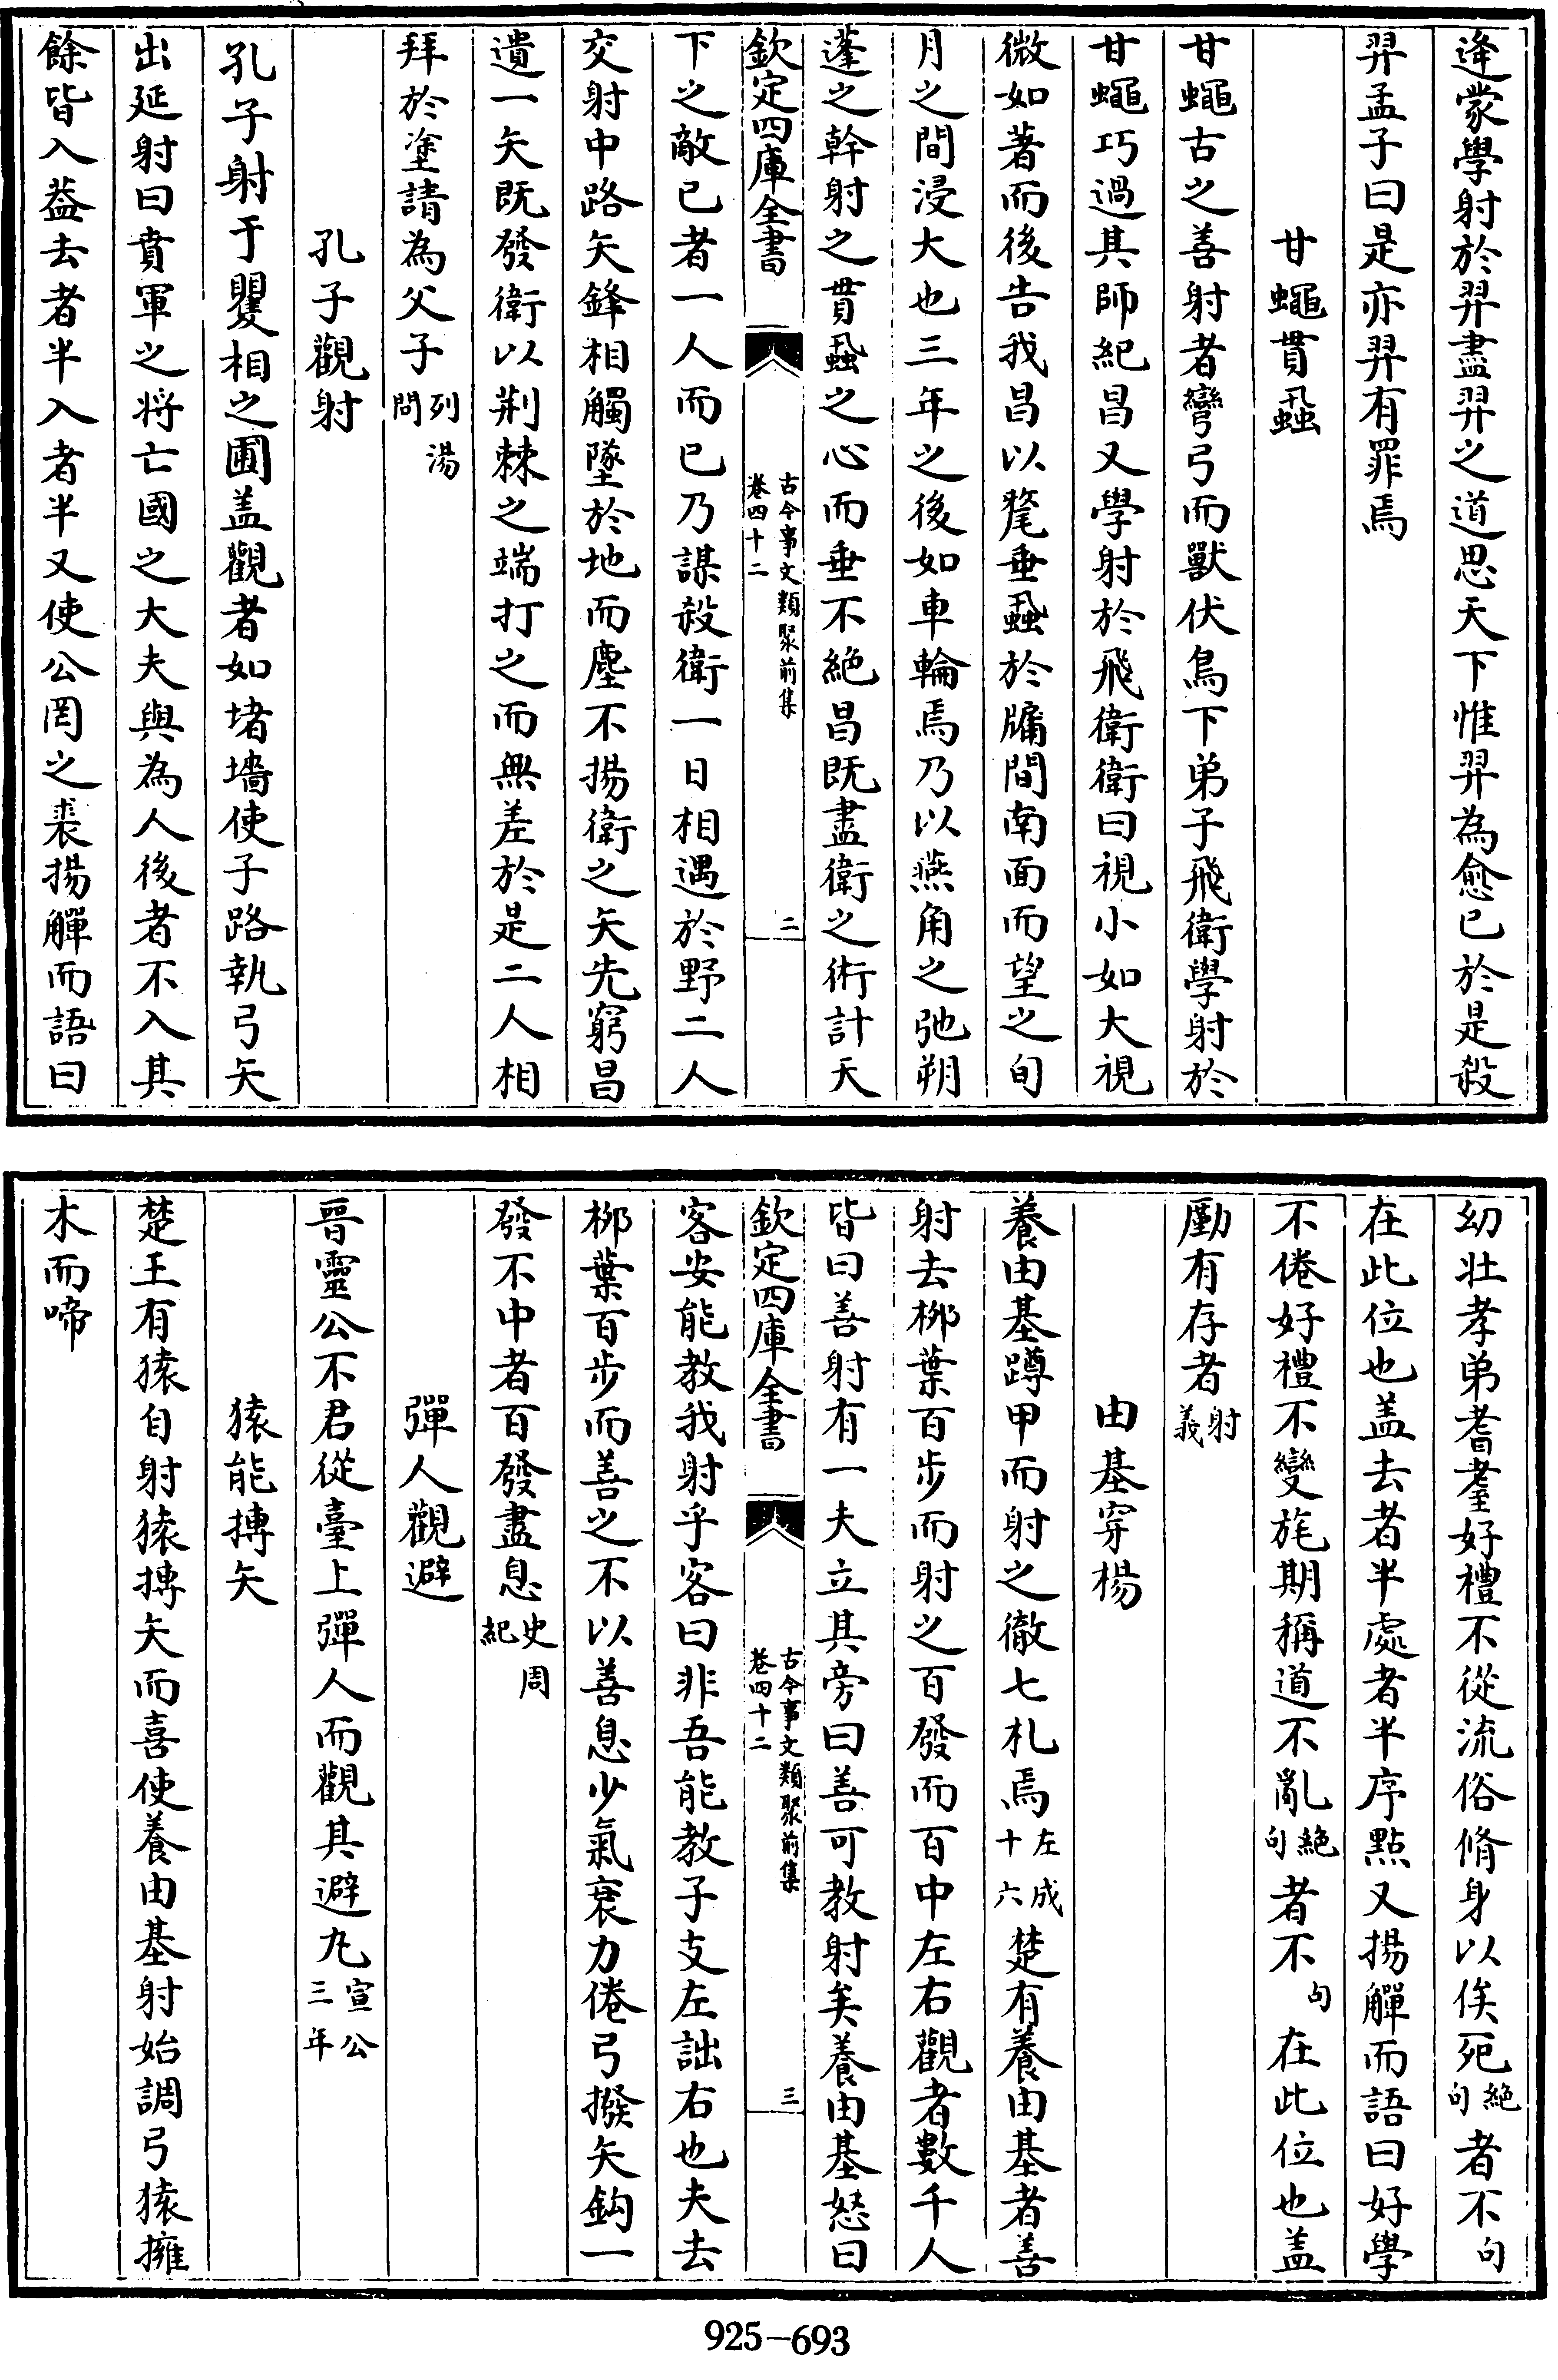 逄蒙學射於羿盡羿之道思天下惟羿為愈已於是殺
羿孟子曰是亦羿有罪焉
甘蠅貫蝨
甘蠅古之善射者彎弓而獸伏鳥下弟子飛衛學射於
甘蠅巧過其師紀昌又學射於飛衛衛曰視小如大視
微如著而後告我昌以氂垂蝨於牖間南面而望之旬
月之間浸大也三年之後如車輪焉乃以燕角之弧朔
蓬之幹射之貫蝨之心而垂不絶昌既盡衛之術計天
欽定四庫全書
古今事文類聚前集
卷四十二
二
下之敵已者一人而已乃謀殺衛一日相遇於野二人
交射中路矢鋒相觸墜於地而塵不揚衛之矢先窮昌
遺一矢既發衛以荆棘之端打之而無差於是二人相
拜於塗請為父子列湯問
孔子觀射
孔子射于矍相之圃盖觀者如堵墻使子路執弓矢
出延射曰賁軍之將亡國之大夫與為人後者不入其
餘皆入葢去者半入者半又使公罔之裘揚觶而語曰
幼壮孝弟耆耋好禮不從流俗脩身以俟死絶句者不句
在此位也盖去者半處者半序點又揚觶而語曰好學
不倦好禮不變旄期稱道不亂絶句者不句在此位也盖
勵有存者射義
由基穿楊
養由基蹲甲而射之徹七札焉左成十六楚有養由基者善
射去栁葉百步而射之百發而百中左右觀者數千人
皆曰善射有一夫立其旁曰善可教射矣養由基怒曰
欽定四庫全書
古今事文類聚前集
卷四十二
三
客安能教我射乎客曰非吾能教子支左詘右也夫去
栁葉百步而善之不以善息少氣衰力倦弓撥矢鈎一
發不中者百發盡息史周紀
彈人觀避
晉靈公不君從臺上彈人而觀其避丸宣公三年
猿能摶矢
楚王有猿自射猿摶矢而喜使養由基射始調弓猿擁
木而啼
925-693